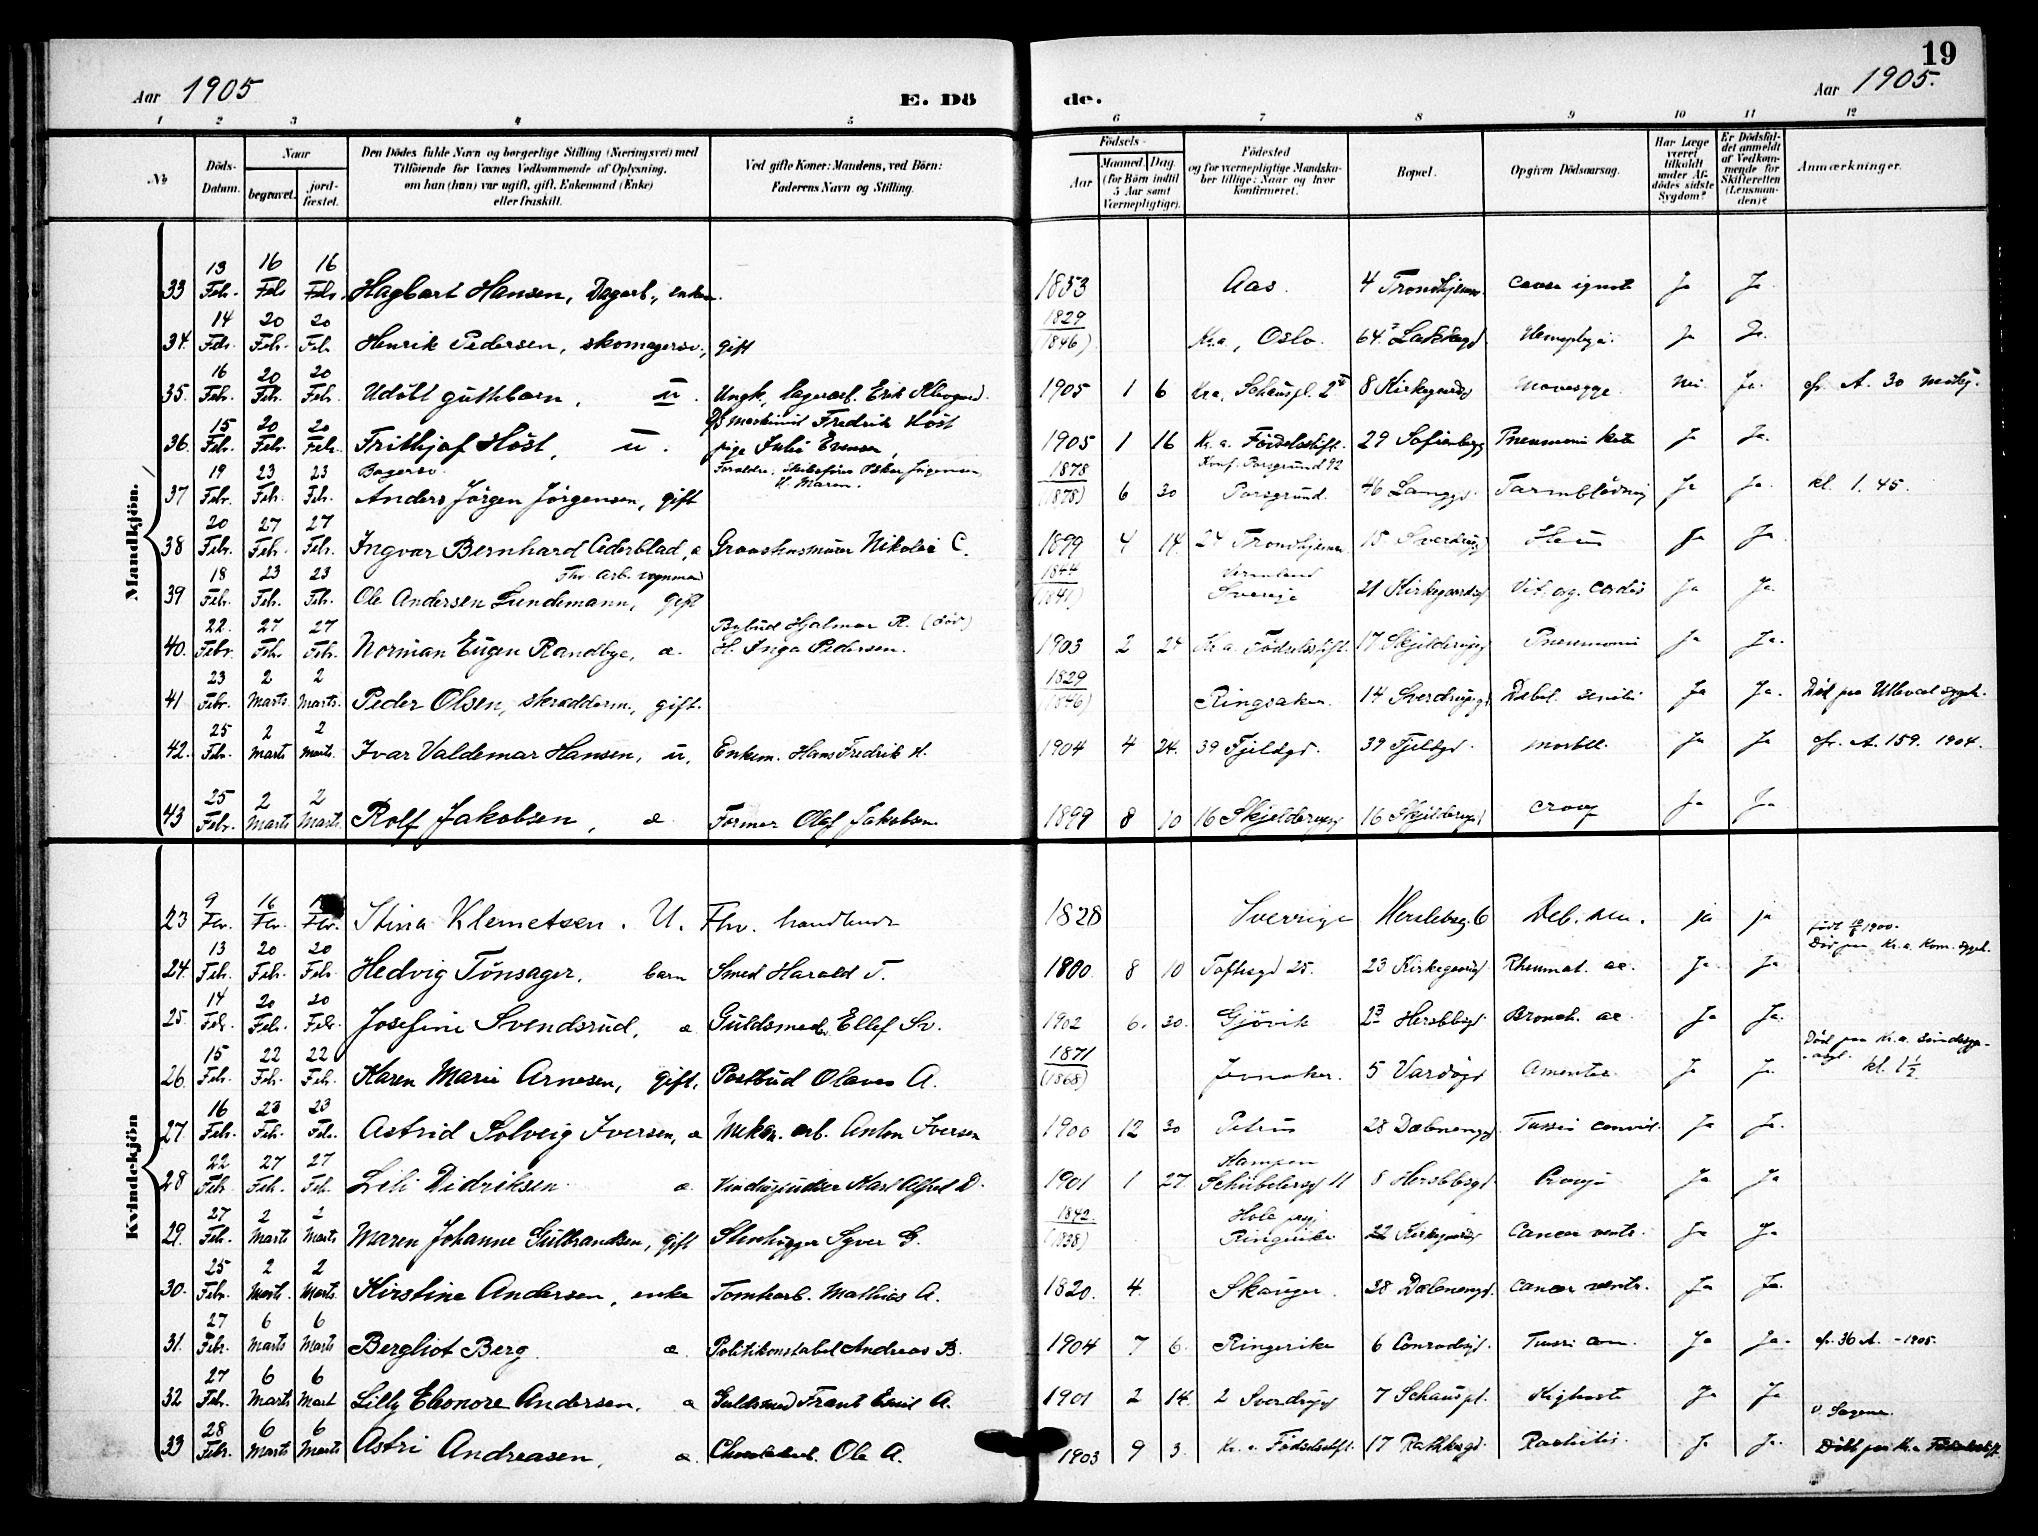 19
Aar 1905
E. Dö
de.
Aar 1905.
1 2 3 4 5 6 7 8 9 10 11 12
No
Döds-Datum.
Naar
begravet.
jord-fæstet.
Den Dödes fulde Navn og borgerlige Stilling (Næringsvei) med
Tilföiende for Voxnes Vedkommende af Oplysning,
om han (hun) var ugift, gift, Enkemand (Enke)
eller fraskilt.
Ved gifte Koner: Mandens, ved Börn:
Faderens Navn og Stilling.
Födsels-
Aar
Maaned. Dag.
(for Börn indtil
5 Aar samt
Værnepligtige).
Födested
og for værnepligtige Mandska-
ber tillige: Naar og hvor
Konfirmeret.
Bopæl.
Opgiven Dödsaarsag.
Har Læge
været
tilkaldt
under Af-
dödes sidste
Sygdom?
Er Dödsfal-
det anmeldt
af Vedkom-
mende for
Skifteretten
(Lensman-
den)?
Anmærkninger.
Mandkjön.
33 13 Febr. 16 Feb 16 Feb. Hagbart Hansen, Dagarb., enkem. 1853 Aas. 4 Trondhjemsv. causa ignota Ja Ja
34. 14 Feb. 20 Feb. 20 Feb Henrik Pedersen, skomagersv., gift 1829 (1846) Kr.a, Oslo. 64 Lakkegd Ja Ja.
35. 16 Feb. 20 Feb. 20 Feb. Udöbt guttebarn, u. Ungk., lagerarb. Erik 1905 1 6 Kr.a, Schauspl. 2 8 Kirkegaardsg Mavesyge. Nei Ja. cfr. A. 30
36. 15 Feb. 20 Feb. 20 Feb. Frithjof Höst, u. maskinist Fredrik Höst
pige Julie Evensen, 1905 1 16 Kr.a. Födselsstift. 29 Sofienbergg Pneumoni Ja Ja.
37 19 Febr. 23 Feb. 23 Feb. Bagersv. Anders Jörgen Jörgensen, gift Forældre: Skibsförer Oskar Jörgensen
H. Maren. 1878 (1878) 6 30 Konf. Porsgrund 92 Porsgrund. 46 Langgd. Tarmblödning Ja Ja. kl. 1.45.
38 20 Febr. 27 Feb. 27 Feb. Ingvar Bernhard Cederblad, æ Graastensmurer Nikolai C. 1899 4 14. 24 Trondhjemsv. 15 Sverdrupsg Ileus Ja Ja.
39 18 Feb. 23 Feb. 23 Feb. Fhv. Arb. vognmand
Ole Andersen Lundemann, gift 1844 (1841) Vermland Sverige 21 Kirkegaardsgd Vit. og. cordis Ja Ja.
40. 22. Febr. 27 Feb. 27 Feb. Norman Eugen Randbye, æ. Bybud Hjalmar R. (död)
H. Inga Pedersen. 1903 2 24 Kr.a. Födselsstift. 17 Skjelderupsg Pneumoni Ja Ja.
41 23 Febr. 2 Marts 2 Marts. Peder Olsen, skrædderm., gift. 1829 (1846) Ringsaker. 14 Sverdrupsgd Debil. senilis Ja Ja. Död paa Ullevaal sygeh.
42. 25 Feb. 2 Marts 2 Marts. Ivar Valdemar Hansen, u. Enkem. Hans Fredrik H. 1904 4 24. 39 Fjeldgd. 39 Fjeldgd. morbill. Ja Ja cfr. A. 159. 1904.
43 25 Febr. 2 Marts 2 Marts. Rolf Jakobsen, æ. Former Olaf Jakobsen 1899 8 10 16 Skjelderupsg 16 Skjelderupsg croup Ja Ja
Kvindekjön
23 9 Fbr. 16 Fbr. Fbr. Stina Klemetsen. U. Fhv. handlende 1828 Sverrige Herslebsg. 6 Deb. sen. ja ja
24. 13 Feb. 20 Feb. 20 Feb. Hedvig Tönsager, barn Smed Harald T. 1800. 8 10 Toftesgd 25. 23 Kirkegaardsgd Rheumat. ac. Ja Ja födt 10/8 1900.
Död paa Kr.a. Kom. sygeh.
25. 14 Feb. 20 Feb. 20 Febr. Josefine Svendsrud, æ Guldsmed. Ellef Sv. 1902 6. 30. Gjövik 23 Herslebsgd. Bronch. ac. Ja Ja.
26. 15 Feb. 22 Feb. 22 Feb. Karen Marie Arnesen, gift, Postbud Olaves A. 1871 (1868) Jevnaker. 5 Vardögd Amentia. Ja Ja. Död paa Kr.a. sindssyge-
asyl. kl. 1½
27. 16 Feb. 23 Feb. 23 Feb. Astrid Solveig Iversen, æ Mekan. arb. Anton Iversen 1900 12 30 Petrus 28 Dælenenggd Tussis convuls. Ja Ja.
28 22 Feb. 27 Feb. 27 Feb. Lili Didriksen æ. Vinduspudser Karl Alfred D. 1901 1 27 Kampen Schübelersgd 11 8 Herslebsgd. Croup Ja Ja
29. 27 Feb. 2 Marts 2 Marts Maren Johanne Gulbrandsen, gift Stenhugger Syver G. 1842. (1838) Hole prgj Ringerike 22 Kirkegaardsg Cancer ventr. Ja Ja
30. 25 Febr. 2 Marts. 2 Marts. Kirstine Andersen, enke Tomtearb. Mathias A. 1820. 4. Skauger. 38 Dælenenggd. Cancer ventr. Ja Ja.
31. 27 Febr. 6 Marts 6 Marts Bergliot Berg æ. Politikonstabel Andreas B. 1904 7 6. Ringerike 6 Conradisgd. Tussis con. Ja Ja. cfr. 36 A. - 1905.
32 27 Feb. 6 Marts 6 Mart Lilly Eleonore Andersen. æ Guldsmed Frantz Emil A. 1901 2 14. 2 Sverdrupsgd 7 Schauspl. Kighoste Ja Ja
33 28 Febr. 6 Marts 6 Marts Astri Andreasen, æ. Ole A. 1903 9 3. Kr.a. Födselsstift. 17 Rathkesgd. Rachitis. Ja Ja. v. Sagene.
Döbt paa Kr.a Födselsstift.